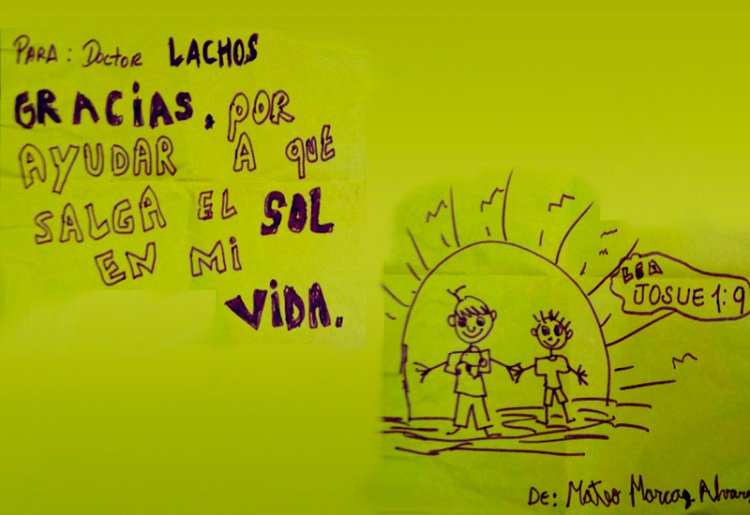 PARA: DOCTOR LACHOS
GRACIAS, POR
AYUDAR A QUE
SALGA EL SOL
EN MI
VIDA.
LEA
JOSUE 1:9
DE: Mateo Marcaq Alvarez